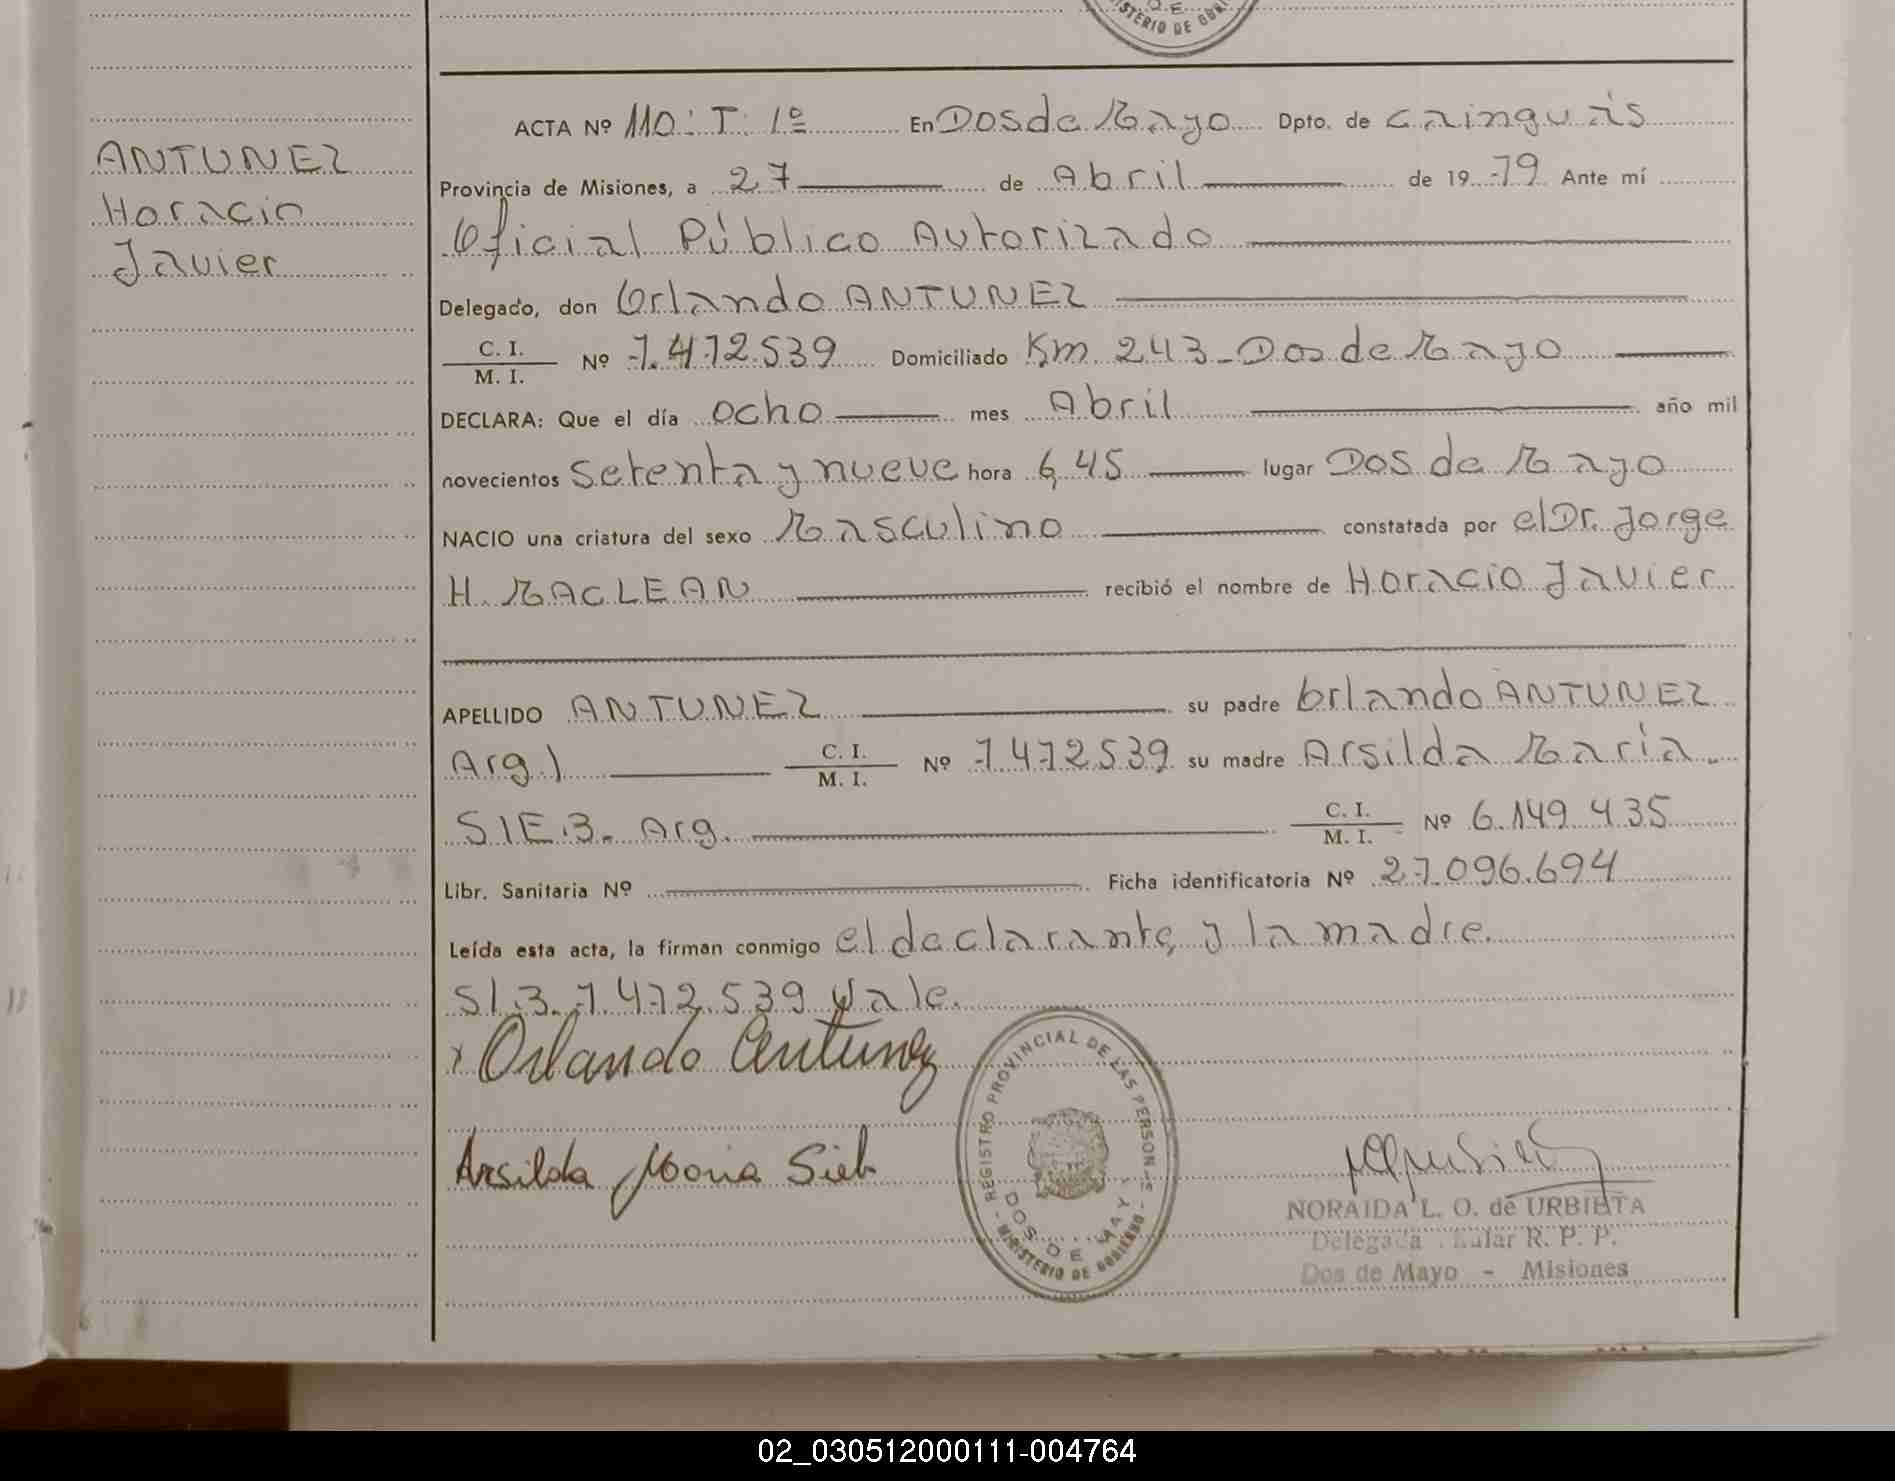 MINISTERIO DE GOBIERNO
ACTA Nº 110: T: 1º En Dos de Mayo Dpto. de Cainguás
ANTUNEZ
Horacio
Javier
Provincia de Misiones, a 27 de Abril de 1979 Ante mí
Oficial Público Autorizado
Delegado, don Orlando ANTUNEZ
C. I.
M. I. Nº 7.472.539 Domiciliado Km 243 - Dos de Mayo
DECLARA: Que el día ocho mes Abril año mil
novecientos setenta y nueve hora 6,45 lugar Dos de Mayo
NACIO una criatura del sexo Masculino constatada por el Dr. Jorge
H. MACLEAN recibió el nombre de Horacio Javier
APELLIDO ANTUNEZ su padre Orlando ANTUNEZ
Arg.) C. I.
M. I. Nº 7.472539 su madre Arsilda María
SIEB. Arg. C. I.
M. I. Nº 6.149.435
Libr. Sanitaria Nº Ficha identificatoria Nº 27.096.694
Leída esta acta, la firman conmigo el declarante, y la madre.
S/B. 7.472.539 Vale.
Orlando Antunez
Arsilda Maria Sieb
REGISTRO PROVINCIAL DE LAS PERSONAS
DOS DE MAYO
MINISTERIO DE GOBIERNO
NORAIDA L. O. de URBIETA
Delegada R. P. P.
Dos de Mayo - Misiones
02_030512000111-004764